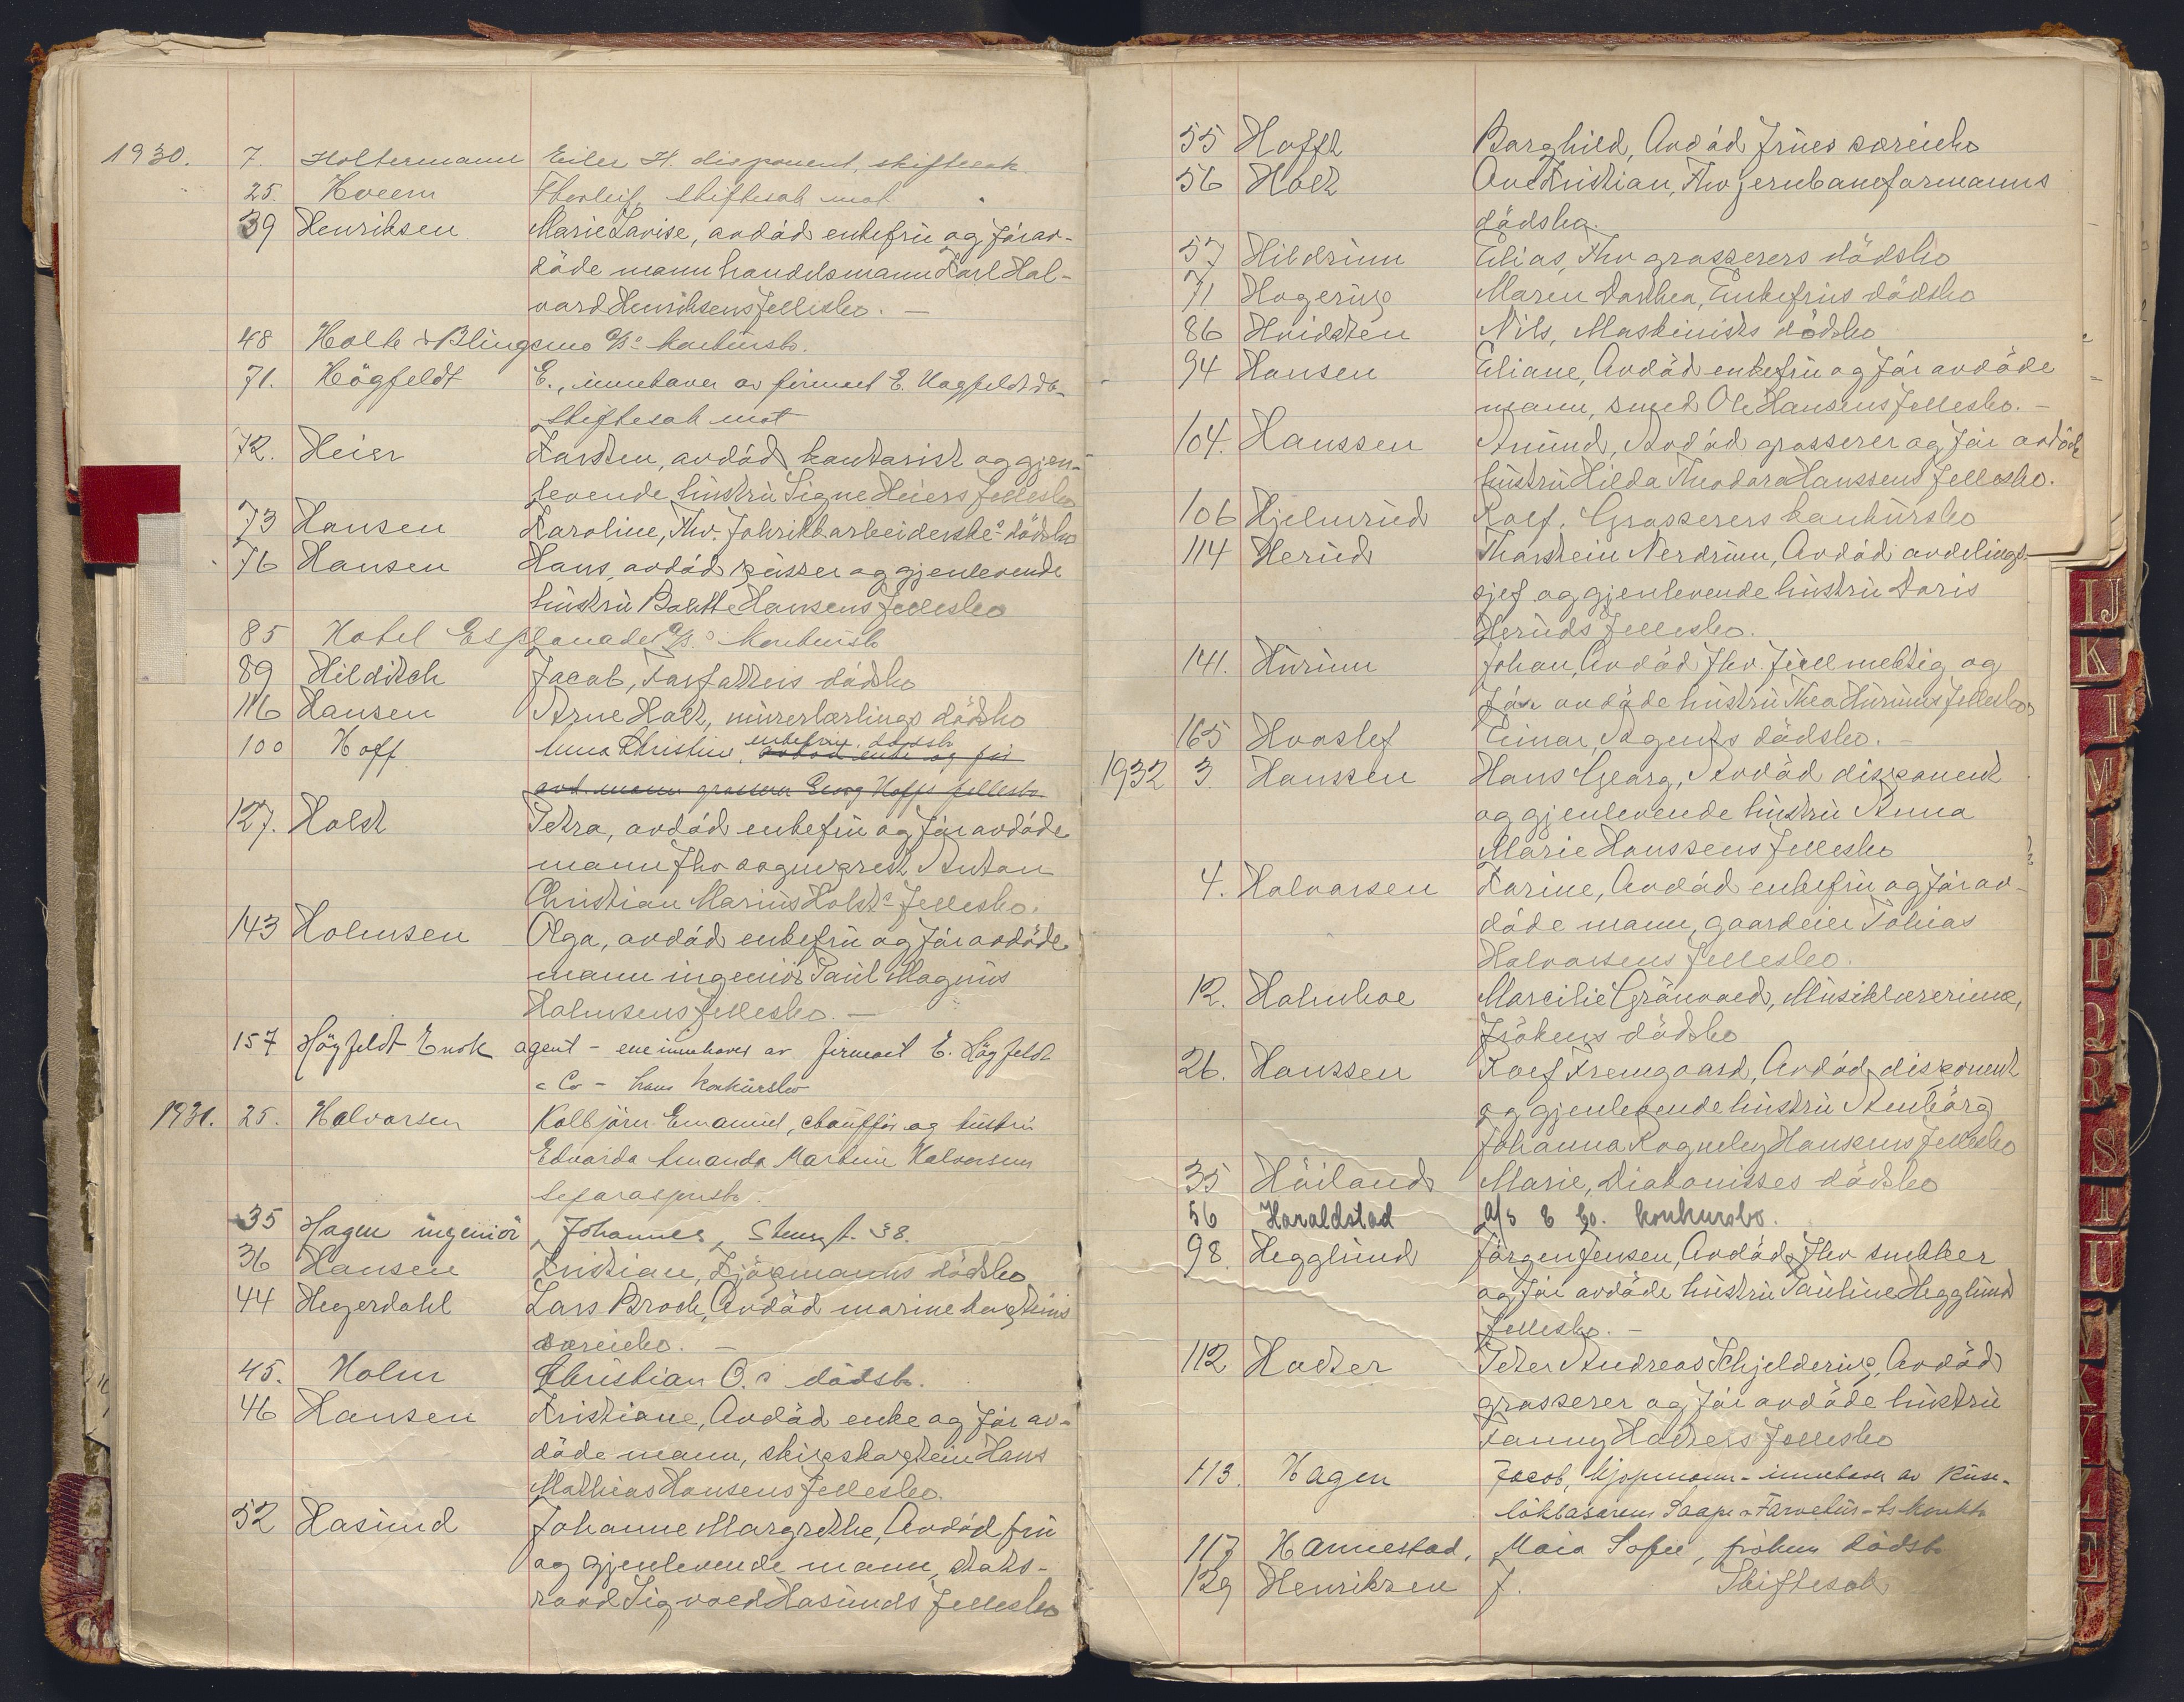 1930. 7. Holtermann Eiler H. disponent, skiftesak.
25. Hveem Thorleif, Skiftesak mot
39 Henriksen Marie Lovise, avdöd enkefru og för av-
döde mann handelsmann Karl Hal-
vard Henriksens fellesbo. —
48 Holte & Blingsmo A/S' konkursbo.
71. Högfeldt E., innehaver av firmaet E. Högfeldt & Co
Skiftesak mot
72. Heier Karsten, avdöd kontorist og gjen-
levende hustru Signe Heiers fellesbo
73 Hansen Karoline, Fhv. fabrikkarbeiderske's dödsbo
76 Hansen Hans, avdöd pusser og gjenlevende
hustru Bolette Hansens fellesbo
85 Hotel Esplanade A/S' konkursbo
89 Hilditch Jacob, Forfatters dödsbo
116 Hansen Arne Holt, murerlærlings dödsbo
100 Hoff Anna Christine, enkefrue, dödsbo
avdöd enke og för
avd. mann grosserer Georg Hoffs fellesbo
127. Holst Petra, avdöd enkefru og för avdöde
mann fhv sogneprest Anton
Christian Marius Holst's fellesbo.
143 Holmsen Olga, avdöd enkefru og för avdöde
mann ingeniör Paul Magnus
Holmsens fellesbo. —
157 Högfeldt Enok agent - eneinnehaver av firmaet E. Högfeldt
& Co - hans konkursbo
1931. 25. Halvorsen Kolbjörn Emanuel, chaufför og hustru
Edvarda Amanda Martine Halvorsens
separasjonsbo.
35 Hagen ingeniör, Johannes, Stensgt. 38.
36 Hansen Kristian, Kjöpmanns dödsbo
44 Hegerdahl Lars Broch, Avdöd marinekapteins
særeiebo. —
45. Holm Christian O.s dödsbo.
46 Hansen Kristiane, Avdöd enke og för av-
döde mann, skipskaptein Hans
Mathias Hansens fellesbo.
52 Hasund Johanne Margrethe, Avdöd fru
og gjenlevende mann, stats-
raad Sigvald Hasunds fellesbo
55 Hofft Borghild, Avdöd frues særeiebo
56 Holt Ove Kristian, Fhv jernbaneformanns
dödsbo.
57 Hildrum Elias, Fhv grosserers dödsbo
71 Hogerup Maren Dorthea, Enkefrus dödsbo
86 Hvidsten Nils, Maskinists dödsbo
94 Hansen Eliane, Avdöd enkefru og för avdöde
mann, smed Ole Hansens fellesbo. —
104. Hanssen Amund, Avdöd grosserer og för avdöde
hustru Hilda Theodora Hanssens fellesbo.
106 Hjelmrud Rolf, Grosserers konkursbo
114 Herud Thorstein Nerdrum, Avdöd avdelings-
sjef og gjenlevende hustru Doris
Heruds fellesbo.
141. Hurum Johan, Avdöd fhv. fuldmektig og
för avdöde hustru Thea Hurums fellesbo
165 Hvoslef Einar, Agents dödsbo. —
1932 3. Hanssen Hans Georg, Avdöd disponent
og gjenlevende hustru Anna
Marie Hanssens fellesbo
4. Halvorsen Karine, Avdöd enkefru og för av-
döde mann, gaardeier Tobias
Halvorsens fellesbo.
12. Holmboe Marcilie Grönvold, Musiklærerinne,
frökens dödsbo
26. Hanssen Rolf Fremgaard, Avdöd disponent
og gjenlevende hustru
Johanna Hanssens fellesbo
35 Höiland Marie, Diakonisses dödsbo
56 Haraldstad A/S & Co. konkursbo.
98. Hegglund Jörgen Jensen, Avdöd fhv snekker
og för avdöde hustru Pauline Hegglund
fellesbo. —
112 Holter Peter Andreas Schjelderup, Avdöd
grosserer og för avdöde hustru
Fanny Holters fellesbo
113. Hagen Jacob, kjøpmann - innehaver av Ruse-
lökbasarens Saape & Farvehus - hs konkbo
117 Hannestad, Maia Sofie, fröken dödsbo
129 Henriksen J. Skiftesak
IJ
K
I
M
N
O
P
Q
R
S
T
U
V